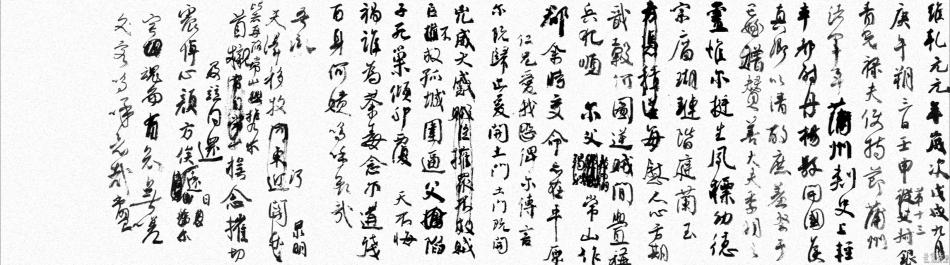 維乾元元年歲次戊戌九月
庚午朔三日壬申第十三從父叔銀
青光祿夫使持節蒲州
諸軍事蒲州刺史上輕
車都尉丹楊縣開國侯
真卿以清酌庶羞祭于
亡姪贈贊善大夫季明之
靈惟爾挺生夙標幼德
宗廟瑚璉階庭蘭玉
每慰人心方期
戩穀何圖逆賊間釁稱
兵犯順爾父常山作
郡余時受命亦在平原
仁兄愛我俾爾傳言
爾既歸止爰開土門土門既開
兇威大蹙賊臣擁眾不救
孤城圍逼父陷
子死巢傾卵覆天不悔
禍誰為荼毒念爾遘殘
百身何贖嗚呼哀哉
吾承
天澤移牧河東近河關泉明
比者再陷常山攜爾
首櫬及茲同還撫念摧切
震悼心顏方俟遠日卜爾
宅魂而有知無嗟
久客嗚呼哀哉尚饗